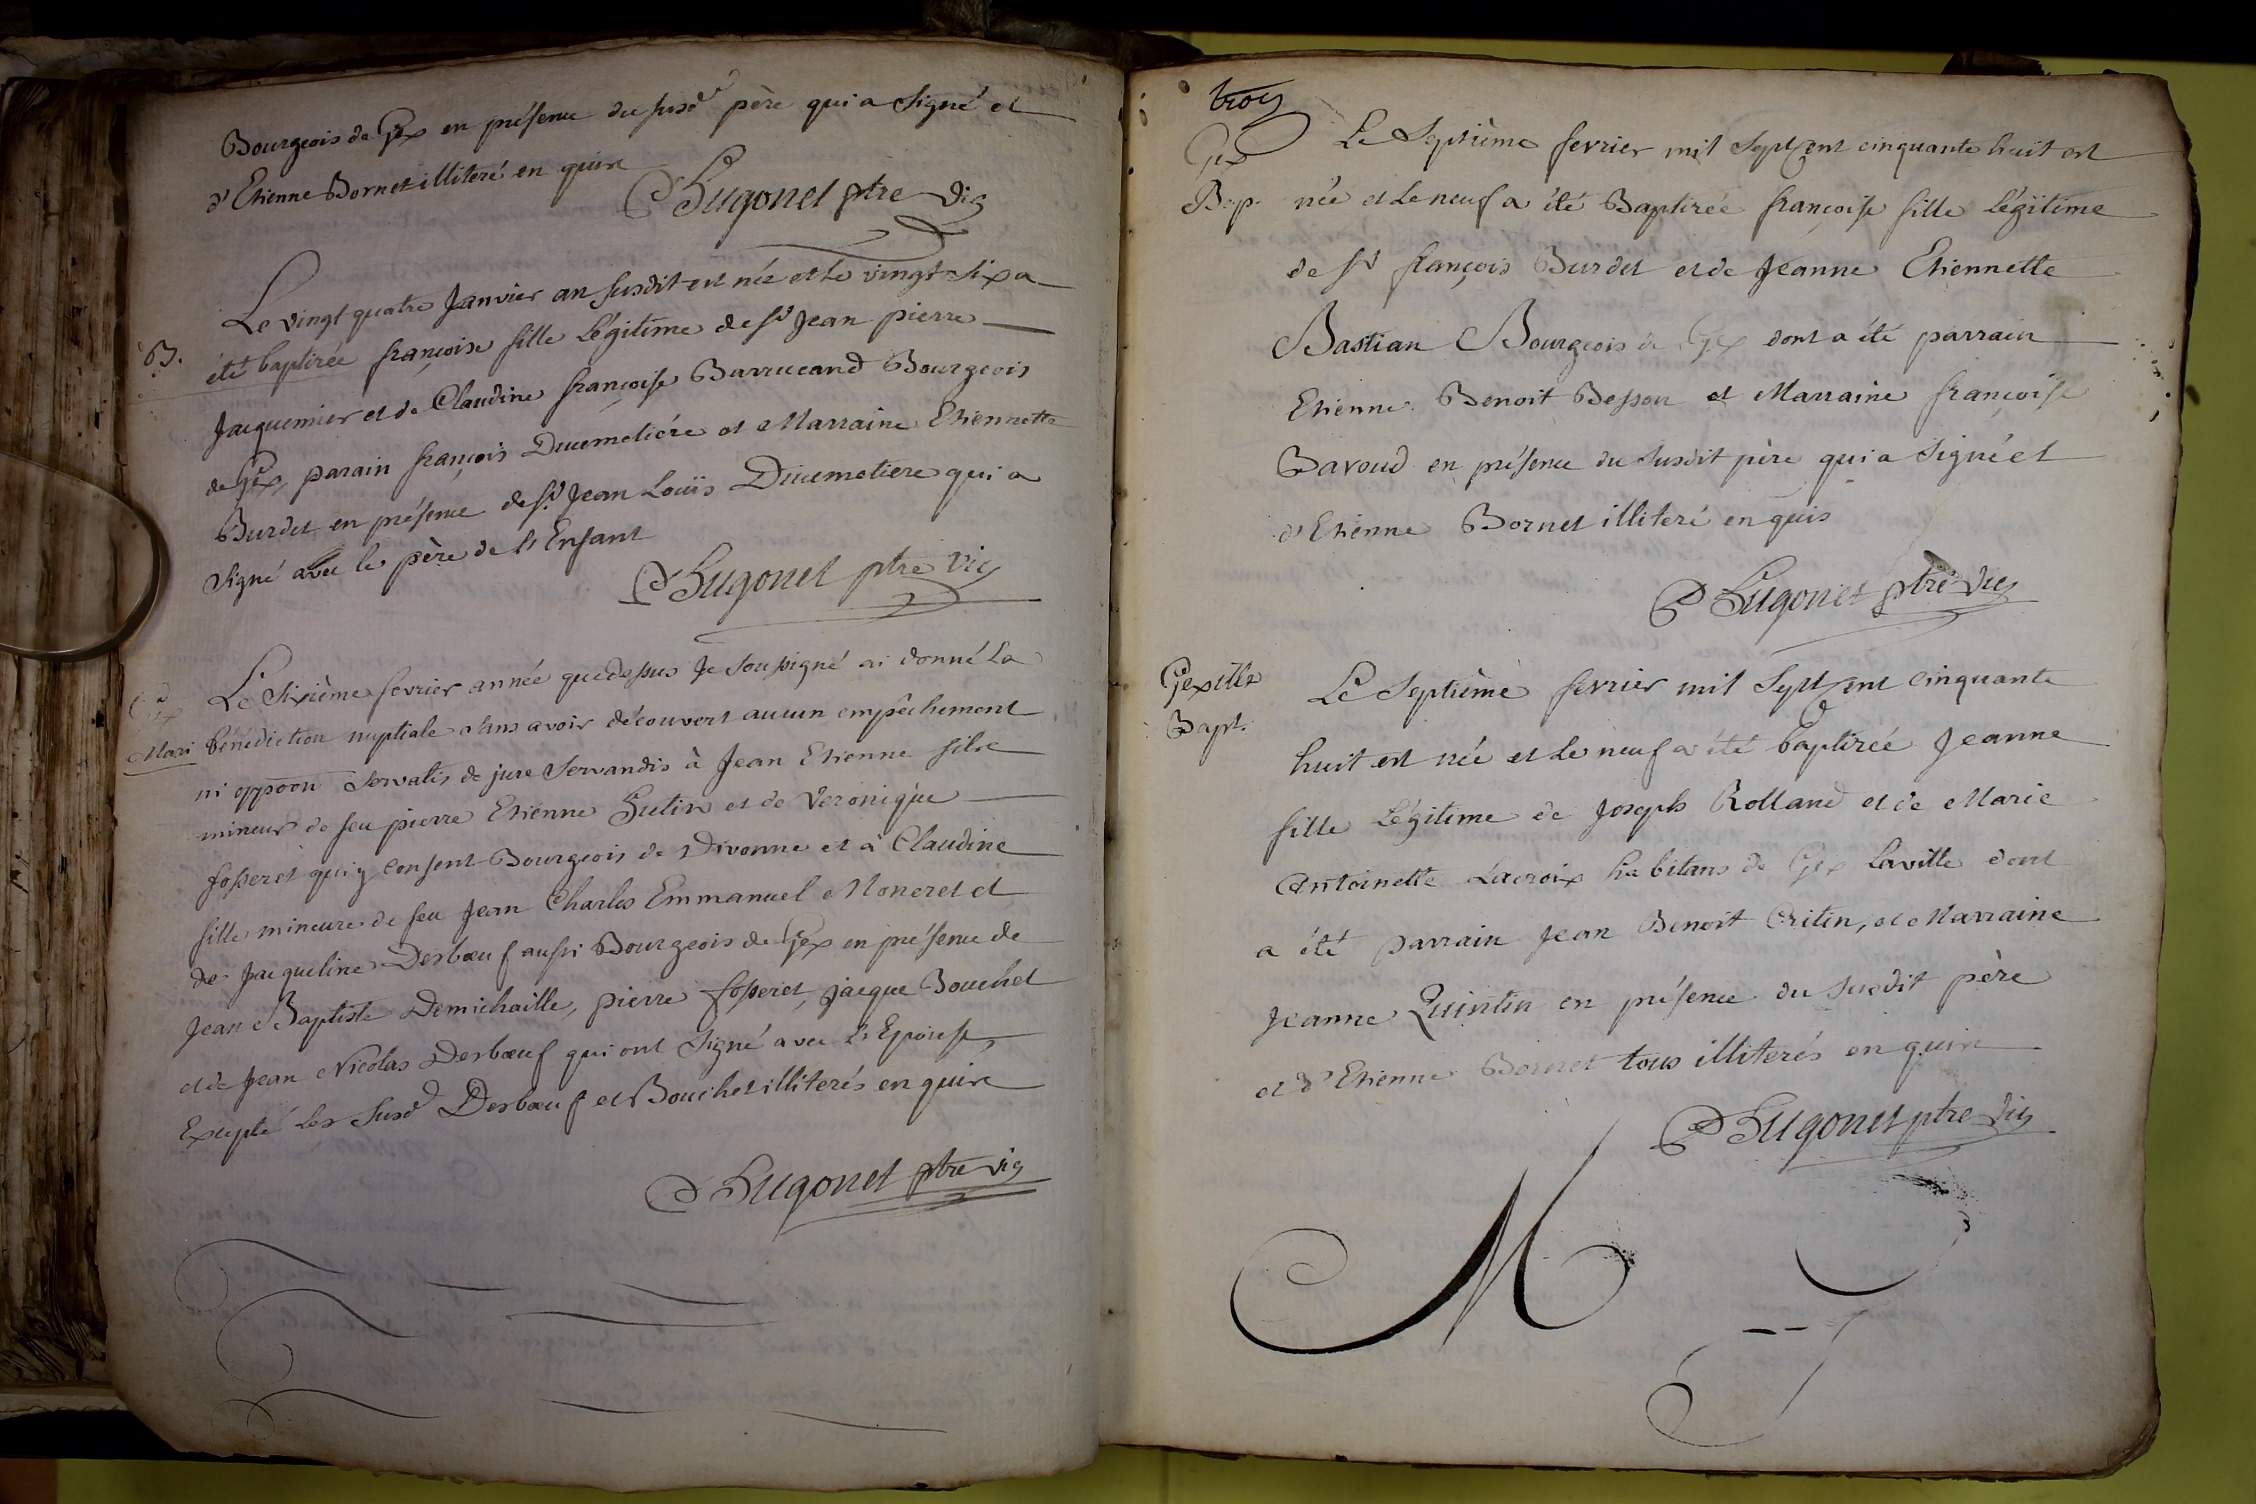 Bourgeois de Gex en présence du susd père qui a signé et
d'Etienne Bornet illiteré en quise
Hugonet ptre Vic
Le vingt quatre Janvier an susdit est née et le vingt-six a
B. été baptisée françoise fille légitime de sr Jean pierre
Jacquemier et de Claudine françoise Barrucand Bourgeois
de Gex, parain françois Ducimetiére et Marraine Etiennette
Burdet en présence de sr Jean Louïs Ducimetiere qui a
signé avec le père de l'Enfant
Hugonet ptre Vic
Le Sixième fevrier année que dessus Je soussigné ai donné La
Gex
Mari bénédiction nuptiale sans avoir découvert aucun empêchement
ni oppoon servatis de jure servandis à Jean Etienne fils
mineur de feu pierre Etienne Hutin et de Veronique
fosseret qui y consent Bourgeois de Divonne et à Claudine
fille mineure de feu Jean Charles Emmanuel Moneret et
de Jacqueline Desbœuf aussi Bourgeois de Gex en présence de
Jean Baptiste Demichaille, pierre fosseret, jacque Bouchet
et de Jean Nicolas Desbœuf qui ont signé avec L'Epouse,
Excepté Les susd Desbœuf et Bouchet illiterés en quise
Hugonet ptre vic
troy
Gex Le Septième fevrier mil Sept cent cinquante huit est
Bap. née et Le neuf a été Baptisée françoise fille Légitime
de sr françois Burdet et de Jeanne Etiennette
Bastian Bourgeois de Gex dont a été parrain
Etienne Benoit Besson et Marraine françoise
Bavoud en présence du susdit père qui a signé et
d'Etienne Bornet illiteré en quis
Hugonet ptre Vic
Gex ville Le Septième fevrier mil Sept cent Cinquante
Bapt. huit est née et Le neuf a été baptisée Jeanne
fille Légitime de Joseph Rolland et de Marie
Antoinette Lacroix habitans de Gex Laville dont
a été parrain Jean Benoit Critin, et Marraine
Jeanne Quintin en présence du susdit père
et d'Etienne Bornet tous illiterés en quise
Hugonet ptre Vic